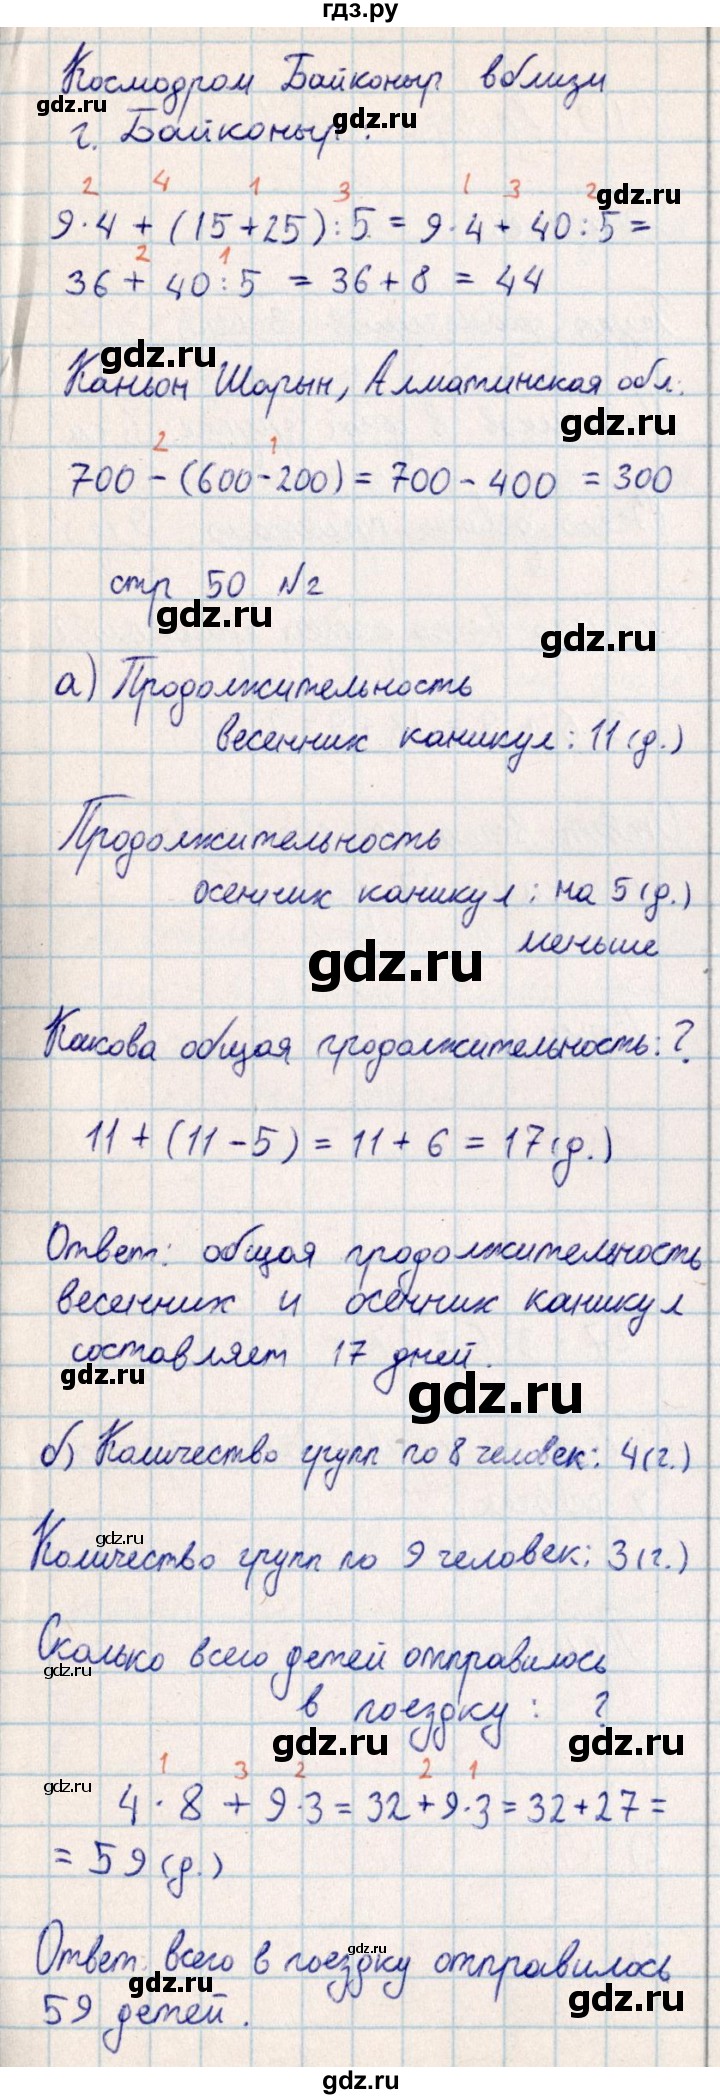 гдз.ру
Космодром Байконыр вблизи
gdz.ru
г. Байконыр.
gdz.ru
2 4 1 3 1 3 2
gdz.ru
9·4 + (15+25):5 = 9·4 + 40:5 =
2 1
36 + 40:5 = 36+8 = 44
gdz.ru
Каньон Шарын, Алматинская обл.
gdz.ru
2 1
700 - (600-200) = 700 - 400 = 300
стр 50 №2
gdz.ru
gdz.ru
а) Продолжительность
весенних каникул: 11 (д.)
Продолжительность
осенних каникул: на 5 (д.)
меньше
gdz.ru
Какова общая продолжительность: ?
11 + (11-5) = 11 + 6 = 17 (д.)
Ответ: общая продолжительность
весенних и осенних каникул
составляет 17 дней.
gdz.ru
gdz.ru
б) Количество групп по 8 человек: 4 (г.)
gdz.ru
Количество групп по 9 человек: 3 (г.)
Сколько всего детей отправилось
gdz.ru
в поездку: ?
gdz.ru
gdz.ru
1 3 2 2 1
gdz.ru
4·8 + 9·3 = 32 + 9·3 = 32 + 27 =
= 59 (д.)
gdz.ru
Ответ: всего в поездку отправилось
gdz.ru
gdz.ru
59 детей.
gdz.ru